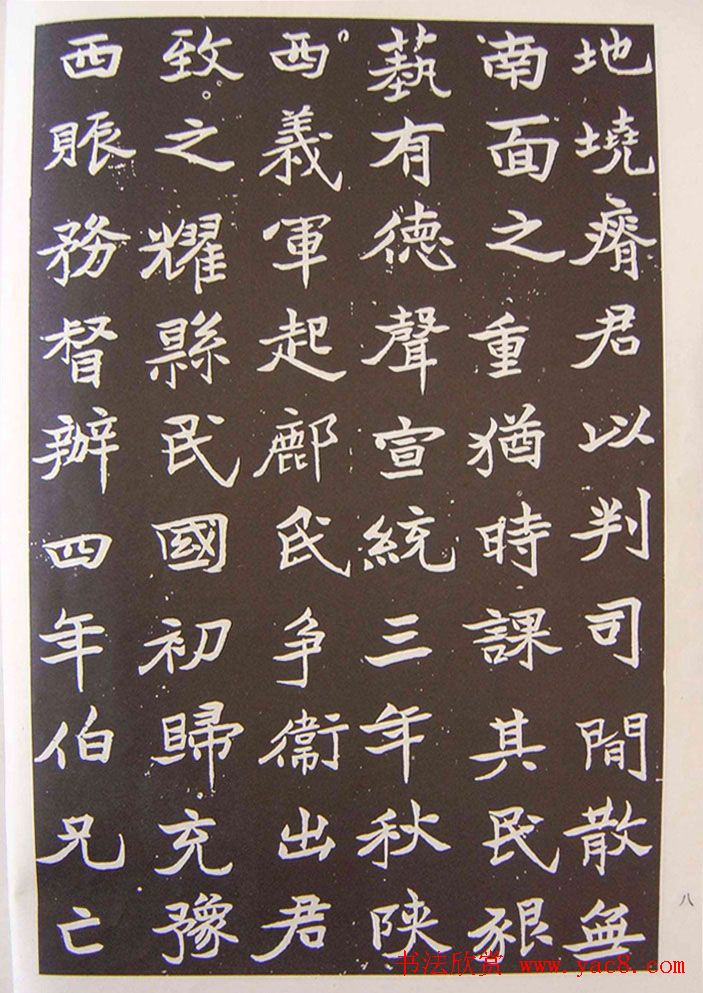 地墝瘠君以判司閒散無
南面之重猶時課其民豤
藝有德聲宣統三年秋陝
西義軍起鄜民争衞出君
致之耀縣民國初歸充豫
西賑務督辦四年伯兄亡
八
书法欣赏 www.yac8.com